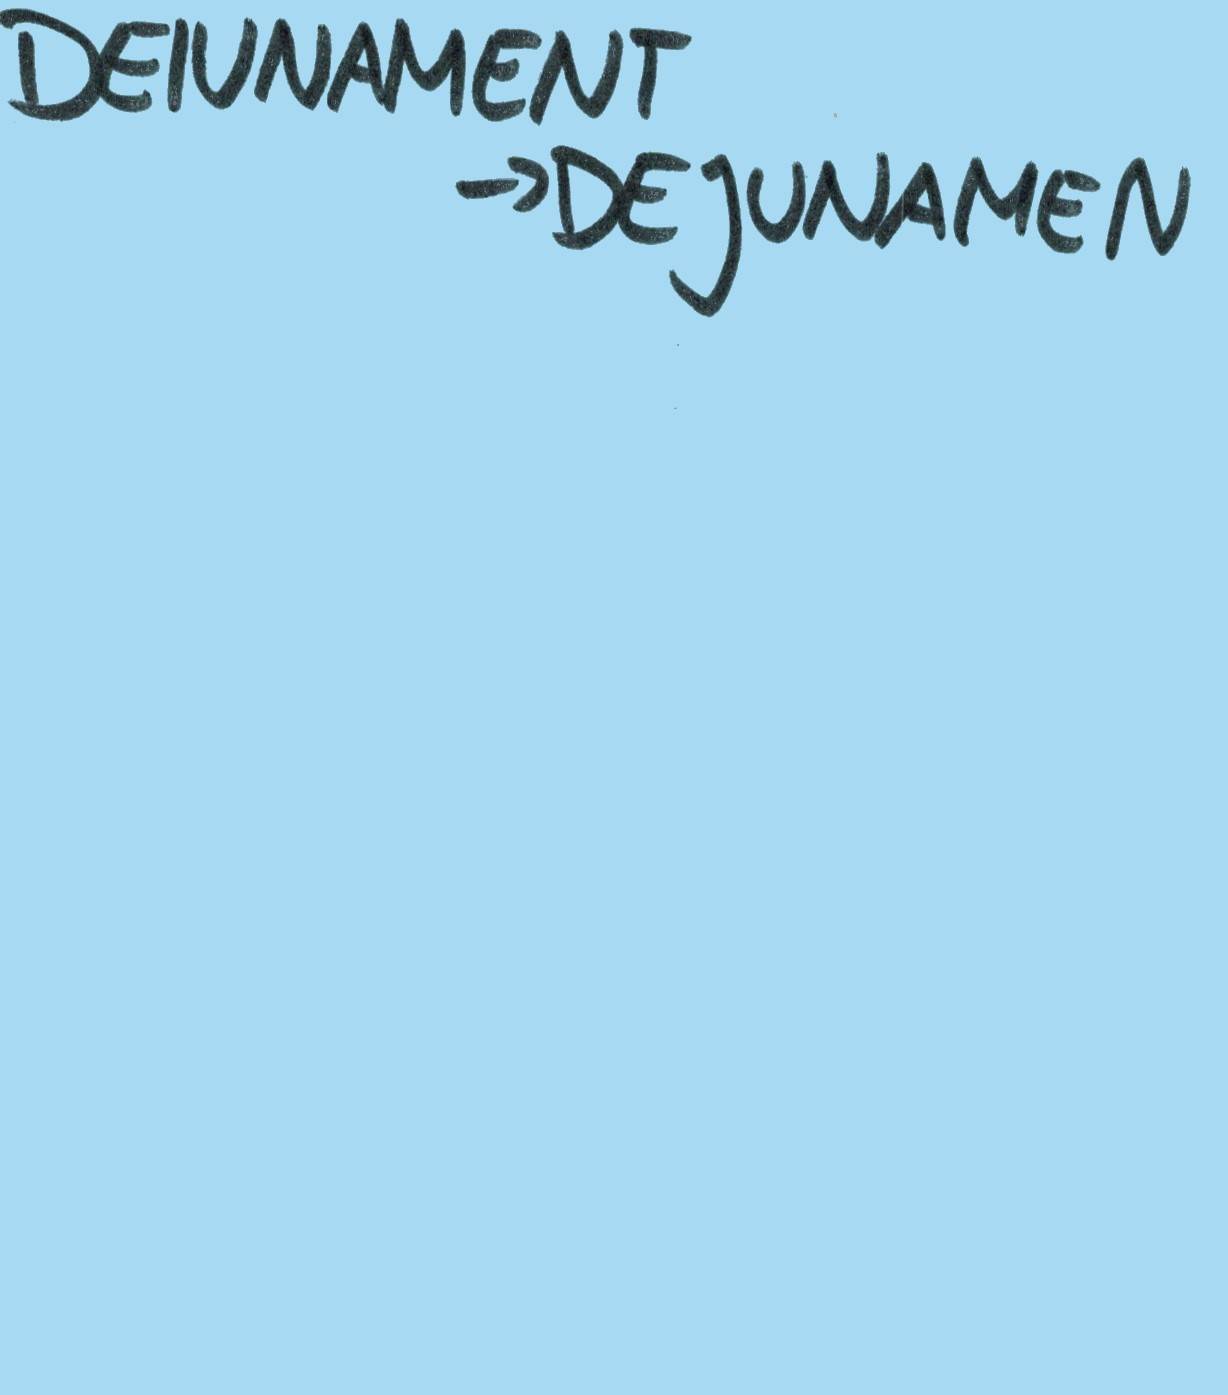 DEIUNAMENT
→DEJUNAMEN